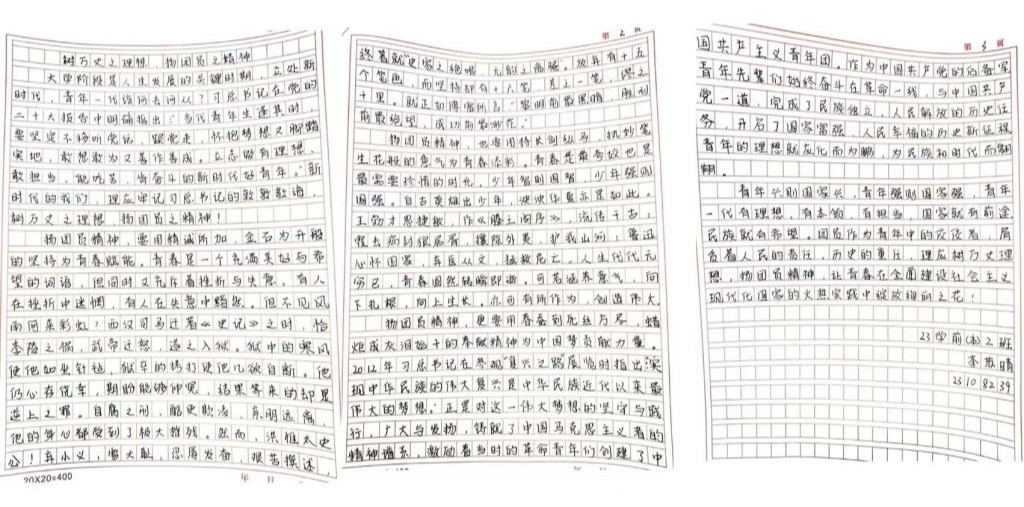 树万丈之理想 扬团员之精神
大学阶段是人生发展的关键时期，立处新
时代，青年一代该何去何从？习总书记在党的
二十大报告中明确指出：当代青年生逢其时，
要坚定不移听党话、跟党走，怀抱梦想又脚踏
实地，敢想敢为又善作善成，立志做有理想、
敢担当、能吃苦、肯奋斗的新时代好青年。"新
时代的我们，理应牢记习总书记的敦敦教诲，
树万丈之理想，扬团员之精神！
扬团员精神，要用精诚所加，金石为开般
的坚持为青春赋能。青春是一个充满美好与希
望的词语，但同时又充斥着挫折与失意。有人
在挫折中迷惘，有人在失意中黯然。但不见风
雨何来彩虹？西汉司马迁著《史记》之时，恰
李陵之祸，武帝迁怒，遂之入狱。狱中的寒风
使他如坐针毡，狱卒的拷打使他几欲自断。他
仍心存侥幸，期盼能够伸冤，结果等来的却是
莫上之罪。自腐之刑，酷吏欺凌，亲朋远离，
他的身心都受到了极大摧残。然而，洪惟太史
公！弃小义，雪大耻，忍辱发奋，艰苦撰述，
20X20=400
年 月
第 2 页
终著就史家之绝唱，无韵之离骚。放弃有十五
个笔画，而坚持却有十六笔，差之一笔，谬之
千里。就正如傅莹所言"黎明前最黑暗，胜利
前最绝望，成功前最渺茫。"
扬团员精神，也要用持长剑纵马，执妙笔
生花般的意气为青春添彩。青春是最奇妙也是
最需要珍惜的时光。少年智则国智，少年强则
国强。自古英雄出少年，泱泱华夏亦是如此。
王勃才思捷敏，作《滕王阁序》，流传千古；
霍去病封狼居胥，攘除外夷，护我山河；鲁迅
心怀国家，弃医从文，拯救危亡。人生代代无
穷已，青春固然转瞬即逝，可若涵养意气，向
下扎根，向上生长，亦可有所作为，创造伟大。
扬团员精神，更要用春蚕到死丝方尽，蜡
炬成灰泪始干的奉献精神为中国梦贡献力量。
2012年习总书记在参观"复兴之路展览时指出"实
现中华民族的伟大复兴是中华民族近代以来最
伟大的梦想。"正是对这一伟大梦想的坚守与践
行，广大与发扬，铸就了中国马克思主义者的
精神谱系，激励着当时的革命青年们创建了中
年 月
第 3 页
国共产主义青年团。作为中国共产党的后备军
青年先辈们始终奋斗在革命一线，与中国共产
党一道，完成了民族独立、人民解放的历史任
务，开启了国家富强、人民幸福的历史新征程
青年的理想就应化而为鹏，为民族和时代而翱
翔。
青年兴则国家兴，青年强则国家强，青年
一代有理想、有本领、有担当，国家就有前途
民族就有希望。团员作为青年中的佼佼者，肩
负着人民的责任，历史的重任，理应树万丈理
想，扬团员精神，让青春在全面建设社会主义
现代化国家的火热实践中绽放绚丽之花！
23学前(本)2班
李放晴
23108239